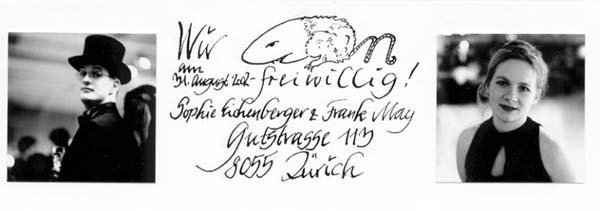 Wir n
am
31. August 2002 - freiwillig!
Sophie Eichenberger & Frank May
Gutstrasse 113
8055 Zürich